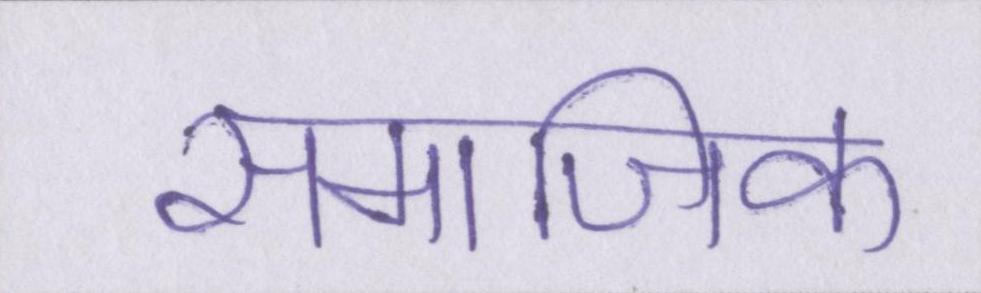 समाजिक